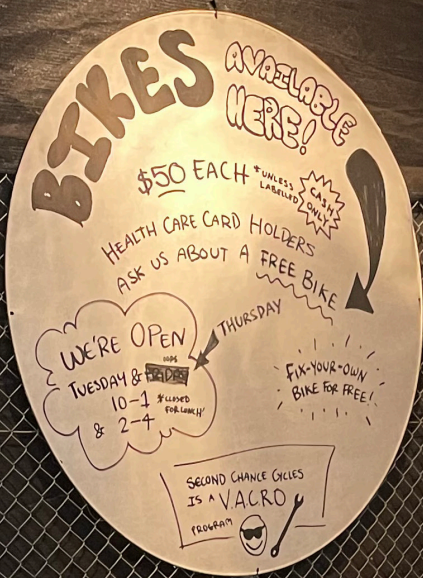 BIKES
AVAILABLE
HERE!
$50 EACH *UNLESS
LABELLED
CASH
ONLY
HEALTH CARE CARD HOLDERS
ASK US ABOUT A FREE BIKE
WE'RE OPEN
THURSDAY
OOPS
TUESDAY & FRIDAY
10-1 *CLOSED
FOR LUNCH*
& 2-4
FIX-YOUR-OWN
BIKE FOR FREE!
SECOND CHANCE CYCLES
IS A V.A.C.R.O
PROGRAM